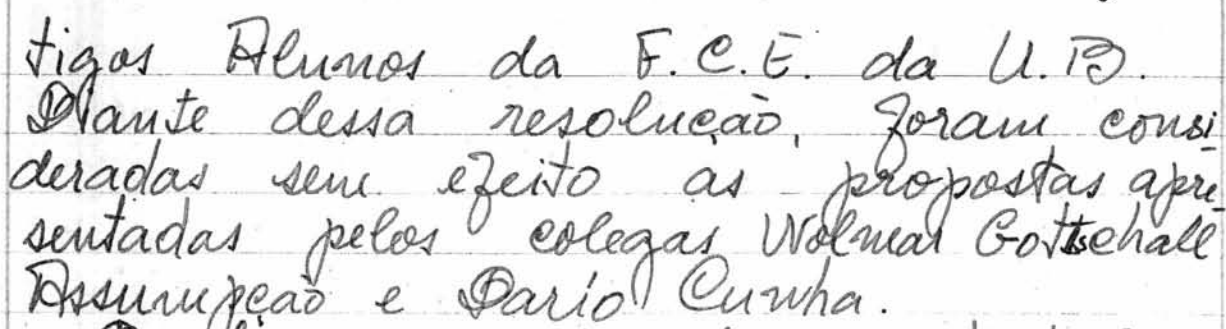 tigos Alunos da F.C.E. da U.B.
Diante dessa resolução, foram consi
deradas sem efeito as propostas apre
sentadas pelos colegas Wolmar Gottschall
Assumpção e Dario Cunha.